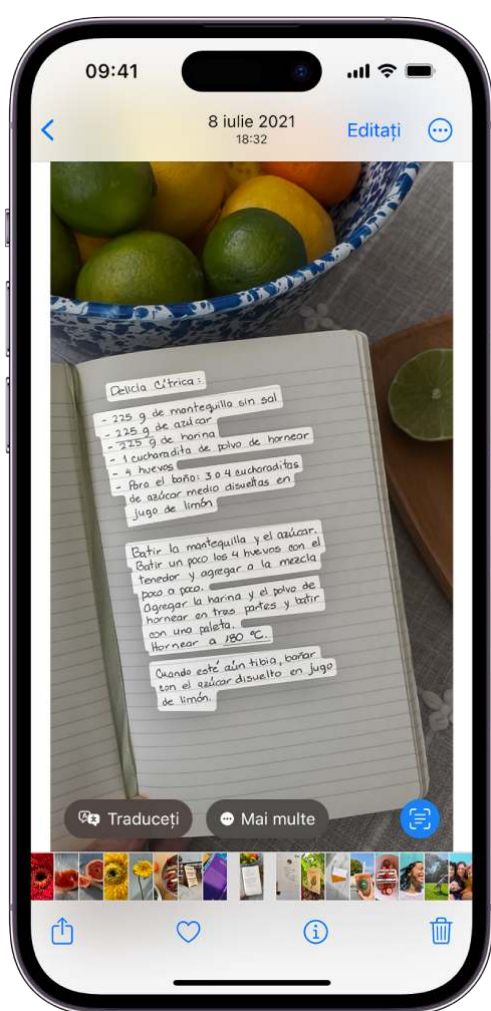 09:41
8 iulie 2021
18:32
Editați
Delicia Cítrica:
- 225 g de mantequilla sin sal
- 225 g de azúcar
- 225 g de harina
- 1 cucharadita de polvo de hornear
- 4 huevos
- Para el baño: 3 o 4 cucharaditas
de azúcar medio disueltas en
jugo de limón
Batir la mantequilla y el azúcar.
Batir un poco los 4 huevos con el
tenedor y agregar a la mezcla
poco a poco.
Agregar la harina y el polvo de
hornear en tres partes y batir
con una paleta.
Hornear a 180 °C.
Cuando esté aún tibia, bañar
con el azúcar disuelto en jugo
de limón.
Traduceți
Mai multe